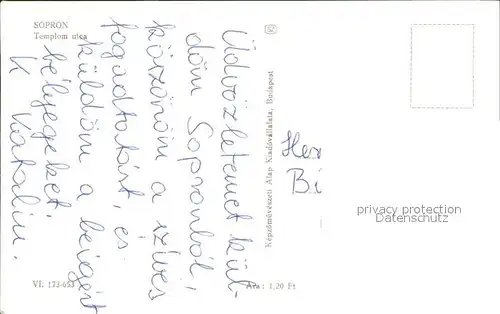 SOPRON
Templom utca
Üdvözletemet kül-
döm Sopronból,
köszönöm a szives
fogadtatást, és
küldöm a beigért
bélyegeket:
Katalin.
VI. 173-653
Képzőművészeti Alap Kiadóvállalata, Budapest
Ára: 1,20 Ft
Her
Bi
privacy protection
Datenschutz